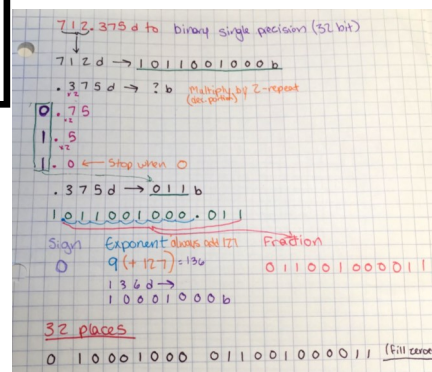 712.375d to binary single precision (32 bit)
712d → 1011001000b
.375d → ?b Multiply by 2 - repeat
(dec. portion)
x2
0.75
x2
1.5
x2
1.0 ← Stop when 0
.375d → 011b
1.011001000.011
Sign Exponent always add 127 Fraction
0 9(+127)=136 011001000011
136d →
10001000b
32 places
0 10001000 011001000011 (fill zeroe